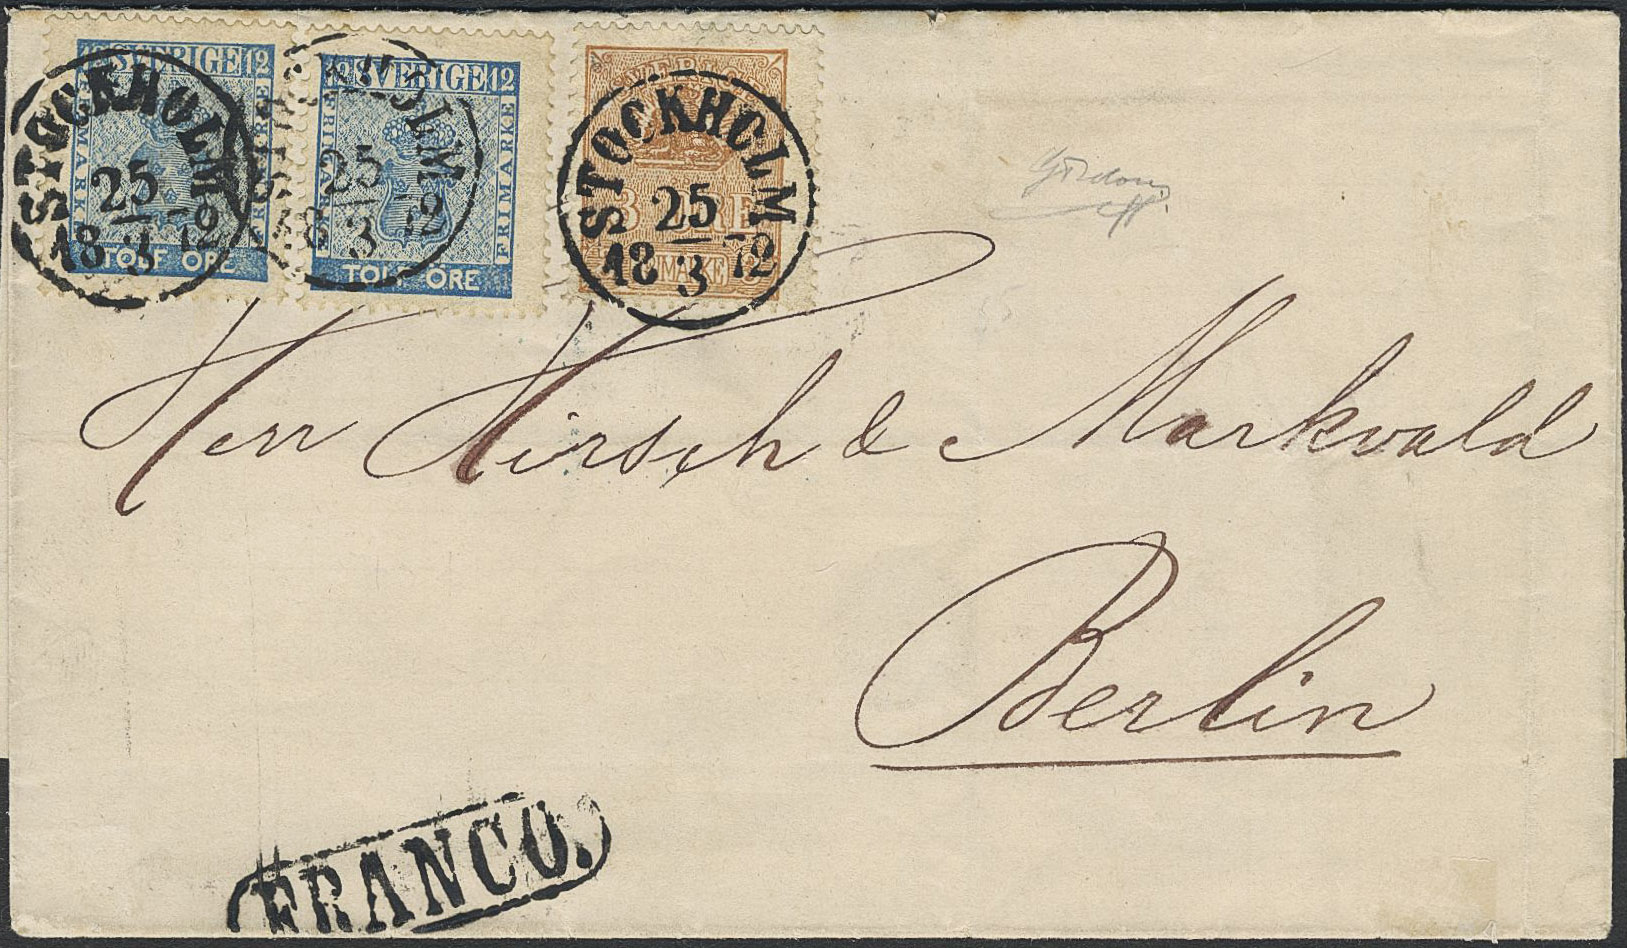 12 SVERIGE 12
FRIMARKE
TOLF ÖRE
STOCKHOLM
25
18 3 72
12 SVERIGE 12
FRIMARKE
TOLF ÖRE
STOCKHOLM
25
18 3 72
SVERIGE
3 ÖRE
STOCKHOLM
25
18 3 72
55
Herr Hirsch & Markvald
Berlin
FRANCO.